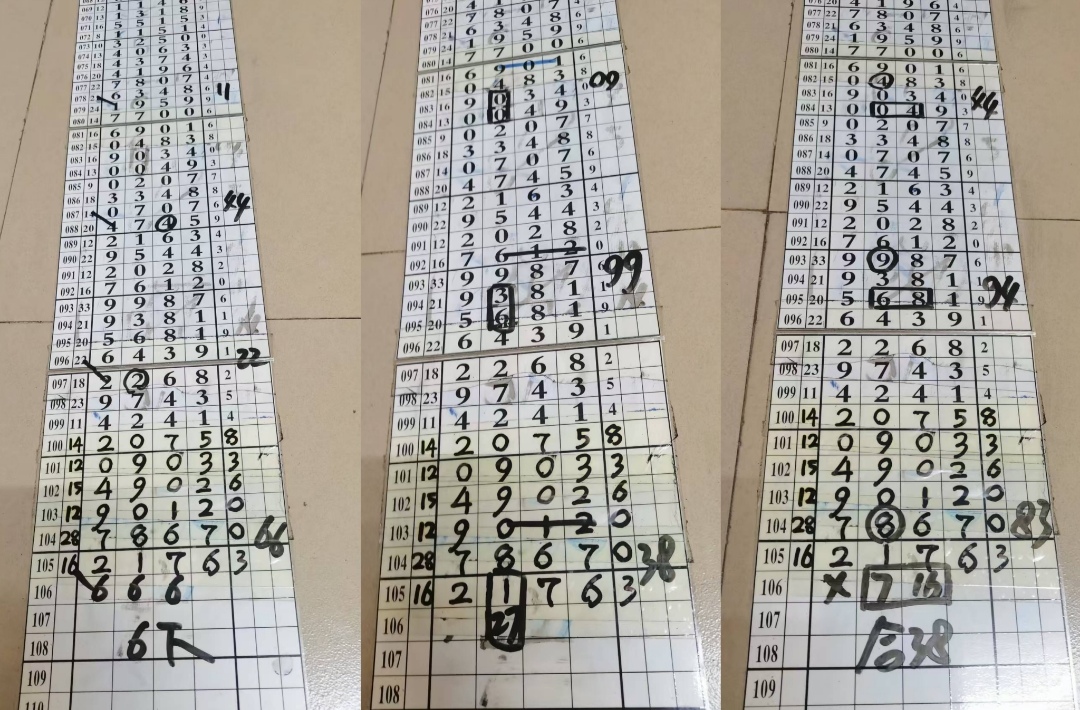 078 6 3 4 8 9 11
079 24 1 9 5 9 6
080 14 7 7 0 0
081 16 6 9 0 1 6
082 15 0 4 8 3 8
083 16 9 0 3 4 0
084 13 0 0 4 9 3
085 9 0 2 0 7 7
086 18 3 3 4 8 8
087 14 0 7 0 7 6 44
088 20 4 7 4 5 9
089 12 2 1 6 3 4
090 22 9 5 4 4 3
091 12 2 0 2 8 2
092 16 7 6 1 2 0
093 33 9 9 8 7 6
094 21 9 3 8 1 1
095 20 5 6 8 1 9
096 22 6 4 3 9 1 22
097 18 2 2 6 8 2
098 23 9 7 4 3 5
099 11 4 2 4 1 4
100 14 2 0 7 5 8
101 12 0 9 0 3 3
102 15 4 9 0 2 6
103 12 9 0 1 2 0
104 28 7 8 6 7 0 66
105 16 2 1 7 6 3
106 6 6 6
107
108 6 下
109
110
079 24 1 9 5 9 6
080 14 7 7 0 0
081 16 6 9 0 1 6
082 15 0 4 8 3 8 09
083 16 9 0 3 4 0
084 13 0 0 4 9 3
085 9 0 2 0 7 7
086 18 3 3 4 8 8
087 14 0 7 0 7 6
088 20 4 7 4 5 9
089 12 2 1 6 3 4
090 22 9 5 4 4 3
091 12 2 0 2 8 2
092 16 7 6 1 2 0
093 33 9 9 8 7 6 99
094 21 9 3 8 1 1
095 20 5 6 8 1 9
096 22 6 4 3 9 1
097 18 2 2 6 8 2
098 23 9 7 4 3 5
099 11 4 2 4 1 4
100 14 2 0 7 5 8
101 12 0 9 0 3 3
102 15 4 9 0 2 6
103 12 9 0 1 2 0
104 28 7 8 6 7 0 38
105 16 2 1 7 6 3
106 27
107
108
079 24 1 9 5 9 9
080 14 7 7 0 0 6
081 16 6 9 0 1 6
082 15 0 4 8 3 8
083 16 9 0 3 4 0 44
084 13 0 0 4 9 3
085 9 0 2 0 7 7
086 18 3 3 4 8 8
087 14 0 7 0 7 6
088 20 4 7 4 5 9
089 12 2 1 6 3 4
090 22 9 5 4 4 3
091 12 2 0 2 8 2
092 16 7 6 1 2 0
093 33 9 9 8 7 6
094 21 9 3 8 1 1
095 20 5 6 8 1 9 94
096 22 6 4 3 9 1
097 18 2 2 6 8 2
098 23 9 7 4 3 5
099 11 4 2 4 1 4
100 14 2 0 7 5 8
101 12 0 9 0 3 3
102 15 4 9 0 2 6
103 12 9 0 1 2 0
104 28 7 8 6 7 0 83
105 16 2 1 7 6 3
106 X 7 16
107
108 后38
109